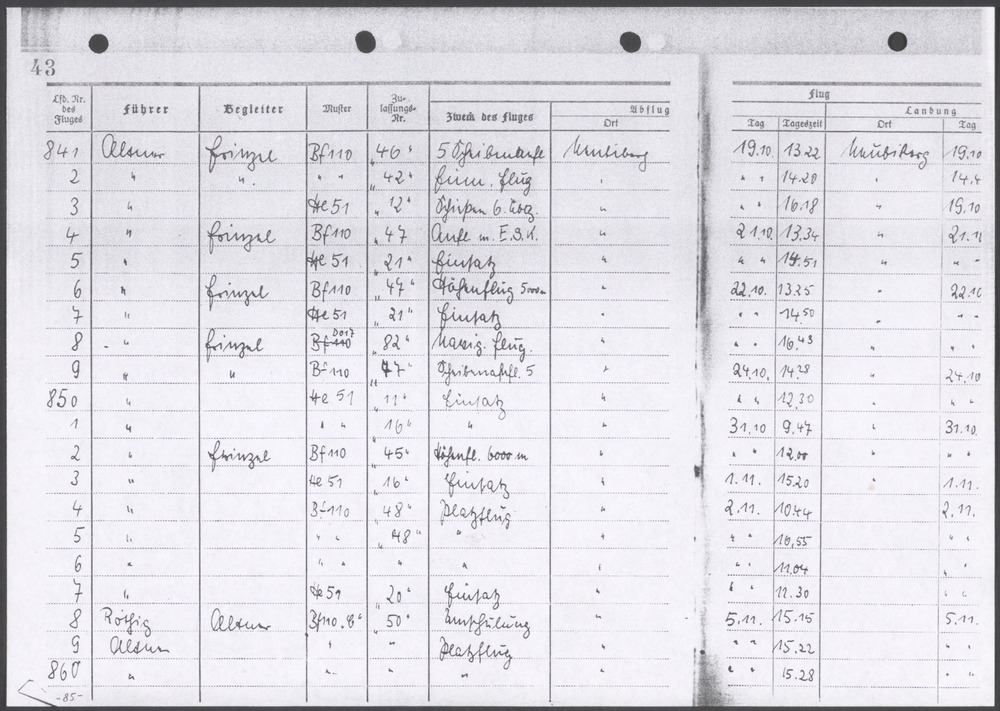 43
Lfd. Nr. des Fluges Führer Begleiter Muster Zulassungs-Nr. Zweck des Fluges Abflug Ort Flug Tag Tageszeit Landung Ort Tag
841 Altner Frinzel Bf 110 „46" 5 Neubiberg 19.10. 13 22 Neubiberg 19.10
2 " " " " „42" Flug " " " 14.20 "
3 " He 51 „12" " " " 16.18 " 19.10
4 " Frinzel Bf 110 „47 " 21.10. 13.34 "
5 " He 51 „21" Einsatz " " " 14.51 " " "
6 " Frinzel Bf 110 „47" Höhenflug 5000m " 22.10. 13.25 " 22.10
7 " He 51 „21" Einsatz " " " 14.50 " " "
8 " Frinzel Bf 110 Do 17 „82" Navig. Flug. " " " 16.43 " " "
9 " " Bf 110 „47" " 24.10. 14.28 " 24.10
850 " He 51 „11" Einsatz " " " 12.30 " " "
1 " " " „16" " " 31.10 9.47 " 31.10.
2 " Frinzel Bf 110 „45" Höhenfl. 6000 m " " " 12.00 " " "
3 " He 51 „16" Einsatz " 1.11. 15.20 " 1.11.
4 " Bf 110 „48" Platzflug " 2.11. 10.44 2.11.
5 " " " „48" " " " " 10,55 " "
6 " " " " " " " " 11.04 " "
7 " He 51 „20" Einsatz " " " 11.30 " "
8 Röthig Altner Bf 110 „50" Umschulung " 5.11. 15.15 5.11.
9 Altner " " Platzflug " " " 15.22 " "
860 " " " " " " 15.28 " "
-85-